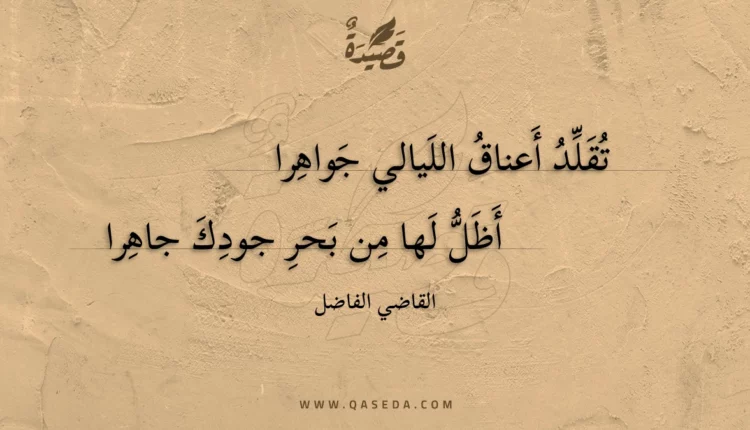 قَصِيدَةٌ
تُقَلِّدُ أَعناقُ اللَيالي جَواهِرا
أَظَلُّ لَها مِن بَحرِ جودِكَ جاهِرا
القاضي الفاضل
WWW.QASEDA.COM